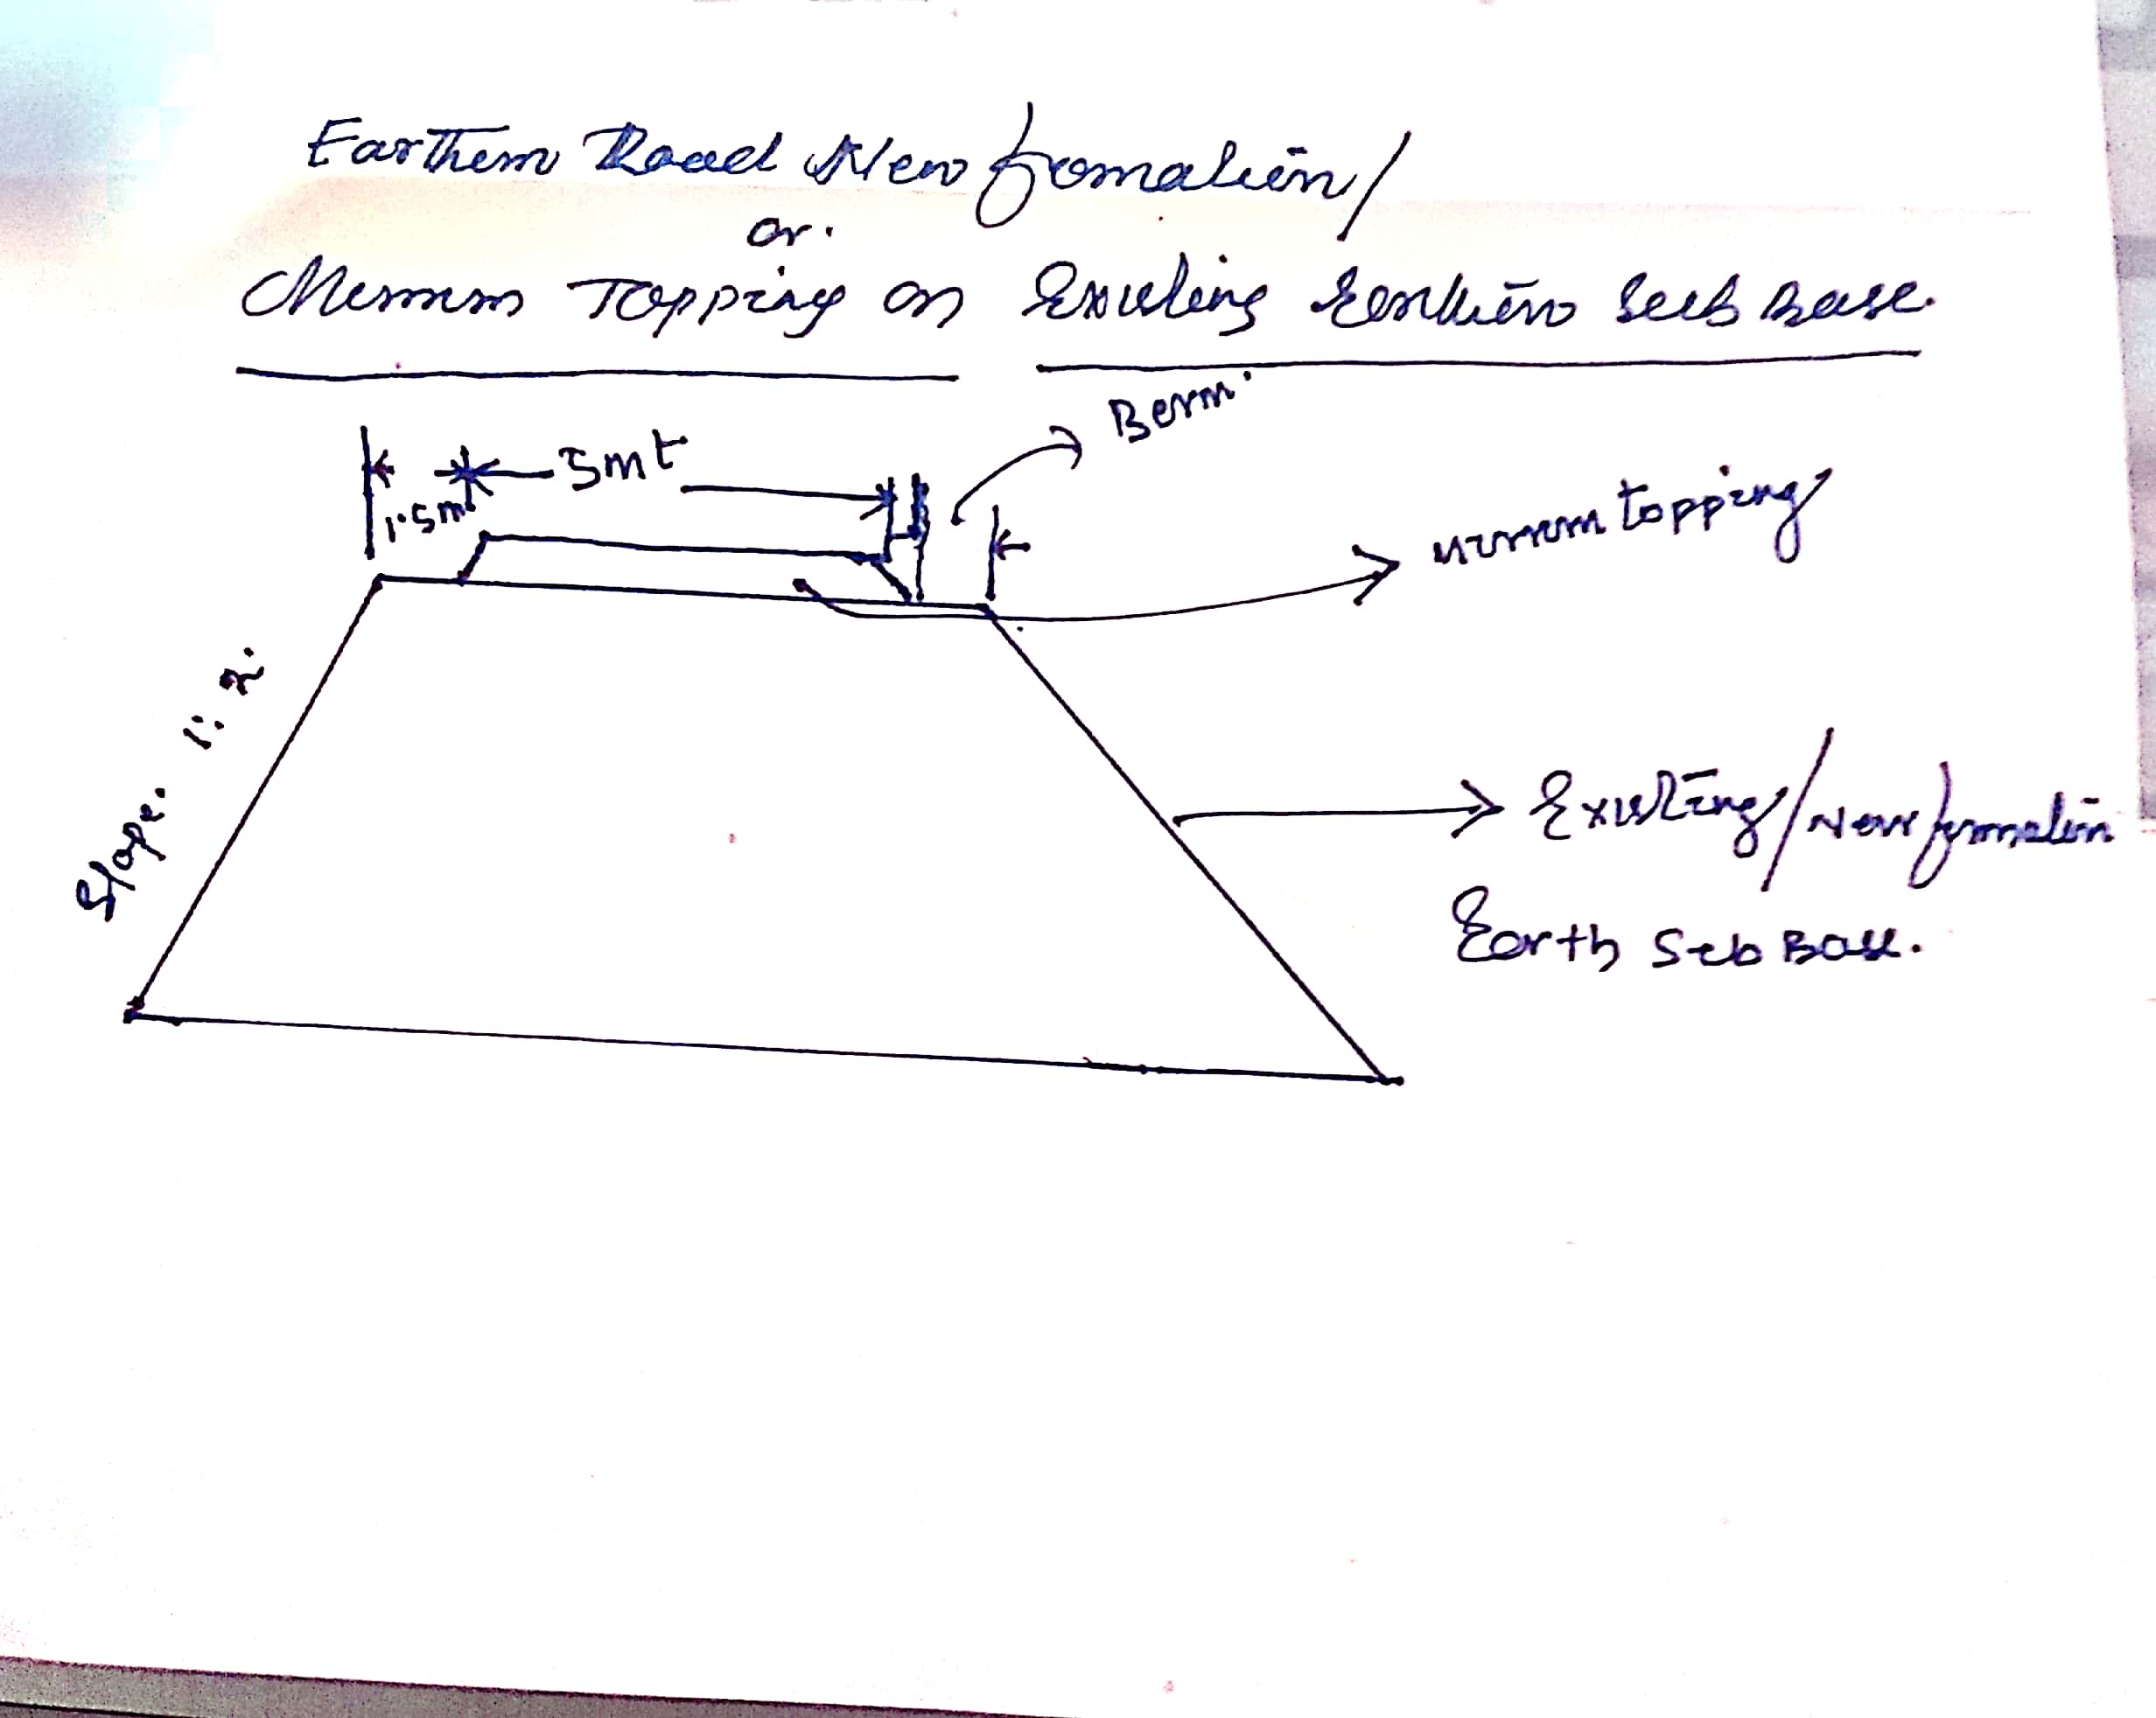 Earthern Road New fomation/
or.
Murrum Topping on Existing Earthen Sub Base.
Berm.
5mt
1.5m
murrum topping
Slope. 1:2.
Existing/New formation
Earth Sub Base.